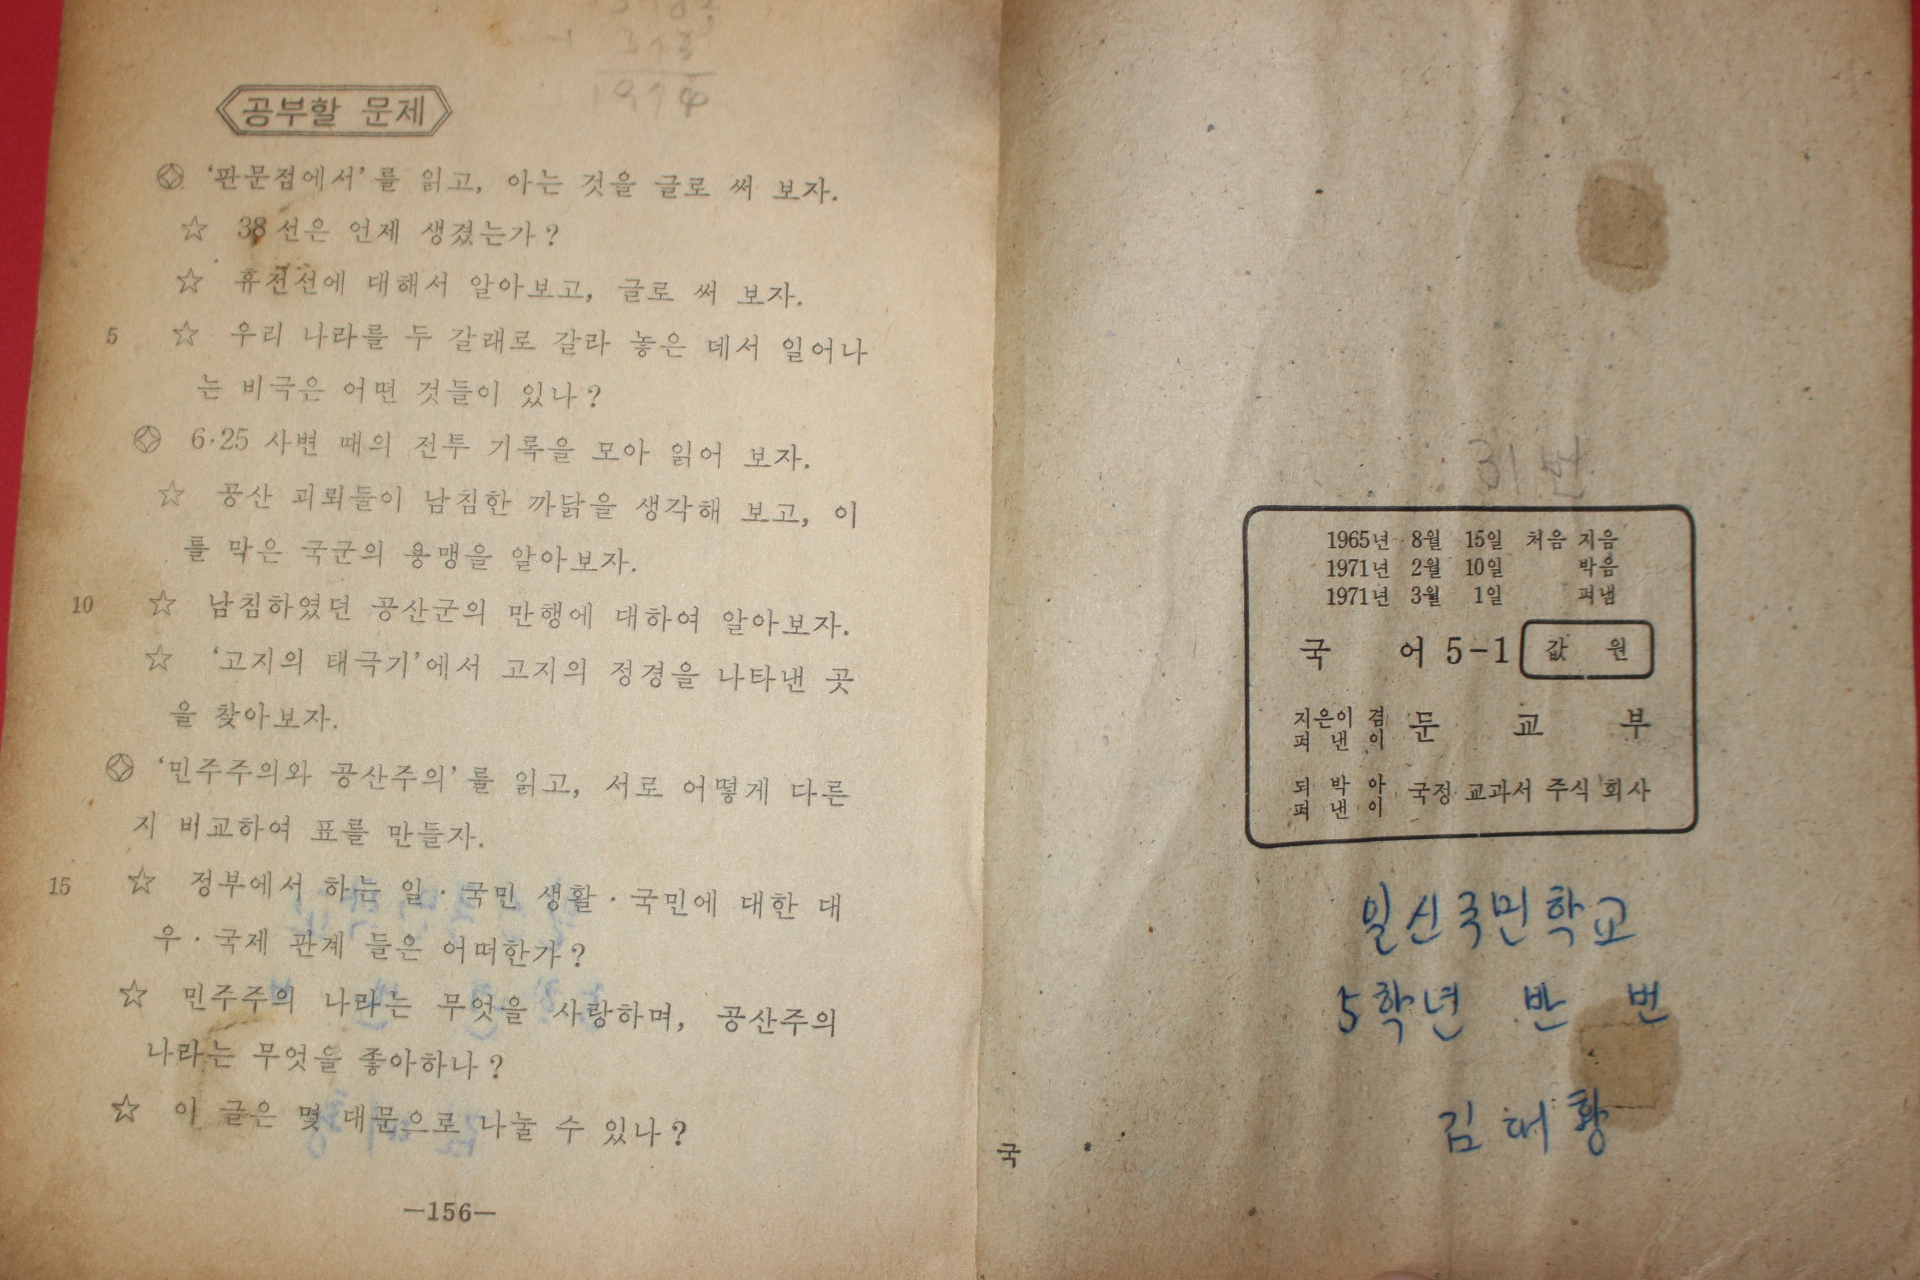 공부할 문제
'판문점에서'를 읽고, 아는 것을 글로 써 보자.
☆ 38선은 언제 생겼는가?
☆ 휴전선에 대해서 알아보고, 글로 써 보자.
5 ☆ 우리 나라를 두 갈래로 갈라 놓은 데서 일어나
는 비극은 어떤 것들이 있나?
6·25 사변 때의 전투 기록을 모아 읽어 보자.
☆ 공산 괴뢰들이 남침한 까닭을 생각해 보고, 이
를 막은 국군의 용맹을 알아보자.
10 ☆ 남침하였던 공산군의 만행에 대하여 알아보자.
☆ '고지의 태극기'에서 고지의 정경을 나타낸 곳
을 찾아보자.
'민주주의와 공산주의'를 읽고, 서로 어떻게 다른
지 비교하여 표를 만들자.
15 ☆ 정부에서 하는 일·국민 생활·국민에 대한 대
우·국제 관계 들은 어떠한가?
☆ 민주주의 나라는 무엇을 사랑하며, 공산주의
나라는 무엇을 좋아하나?
☆ 이 글은 몇 대문으로 나눌 수 있나?
—156—
31번
1965년 8월 15일 처음 지음
1971년 2월 10일 박음
1971년 3월 1일 펴냄
국 어 5-1 값 원
지은이 겸
펴 낸 이 문 교 부
되 박 아
펴 낸 이 국정 교과서 주식 회사
일신국민학교
5학년 반 번
김대황
국